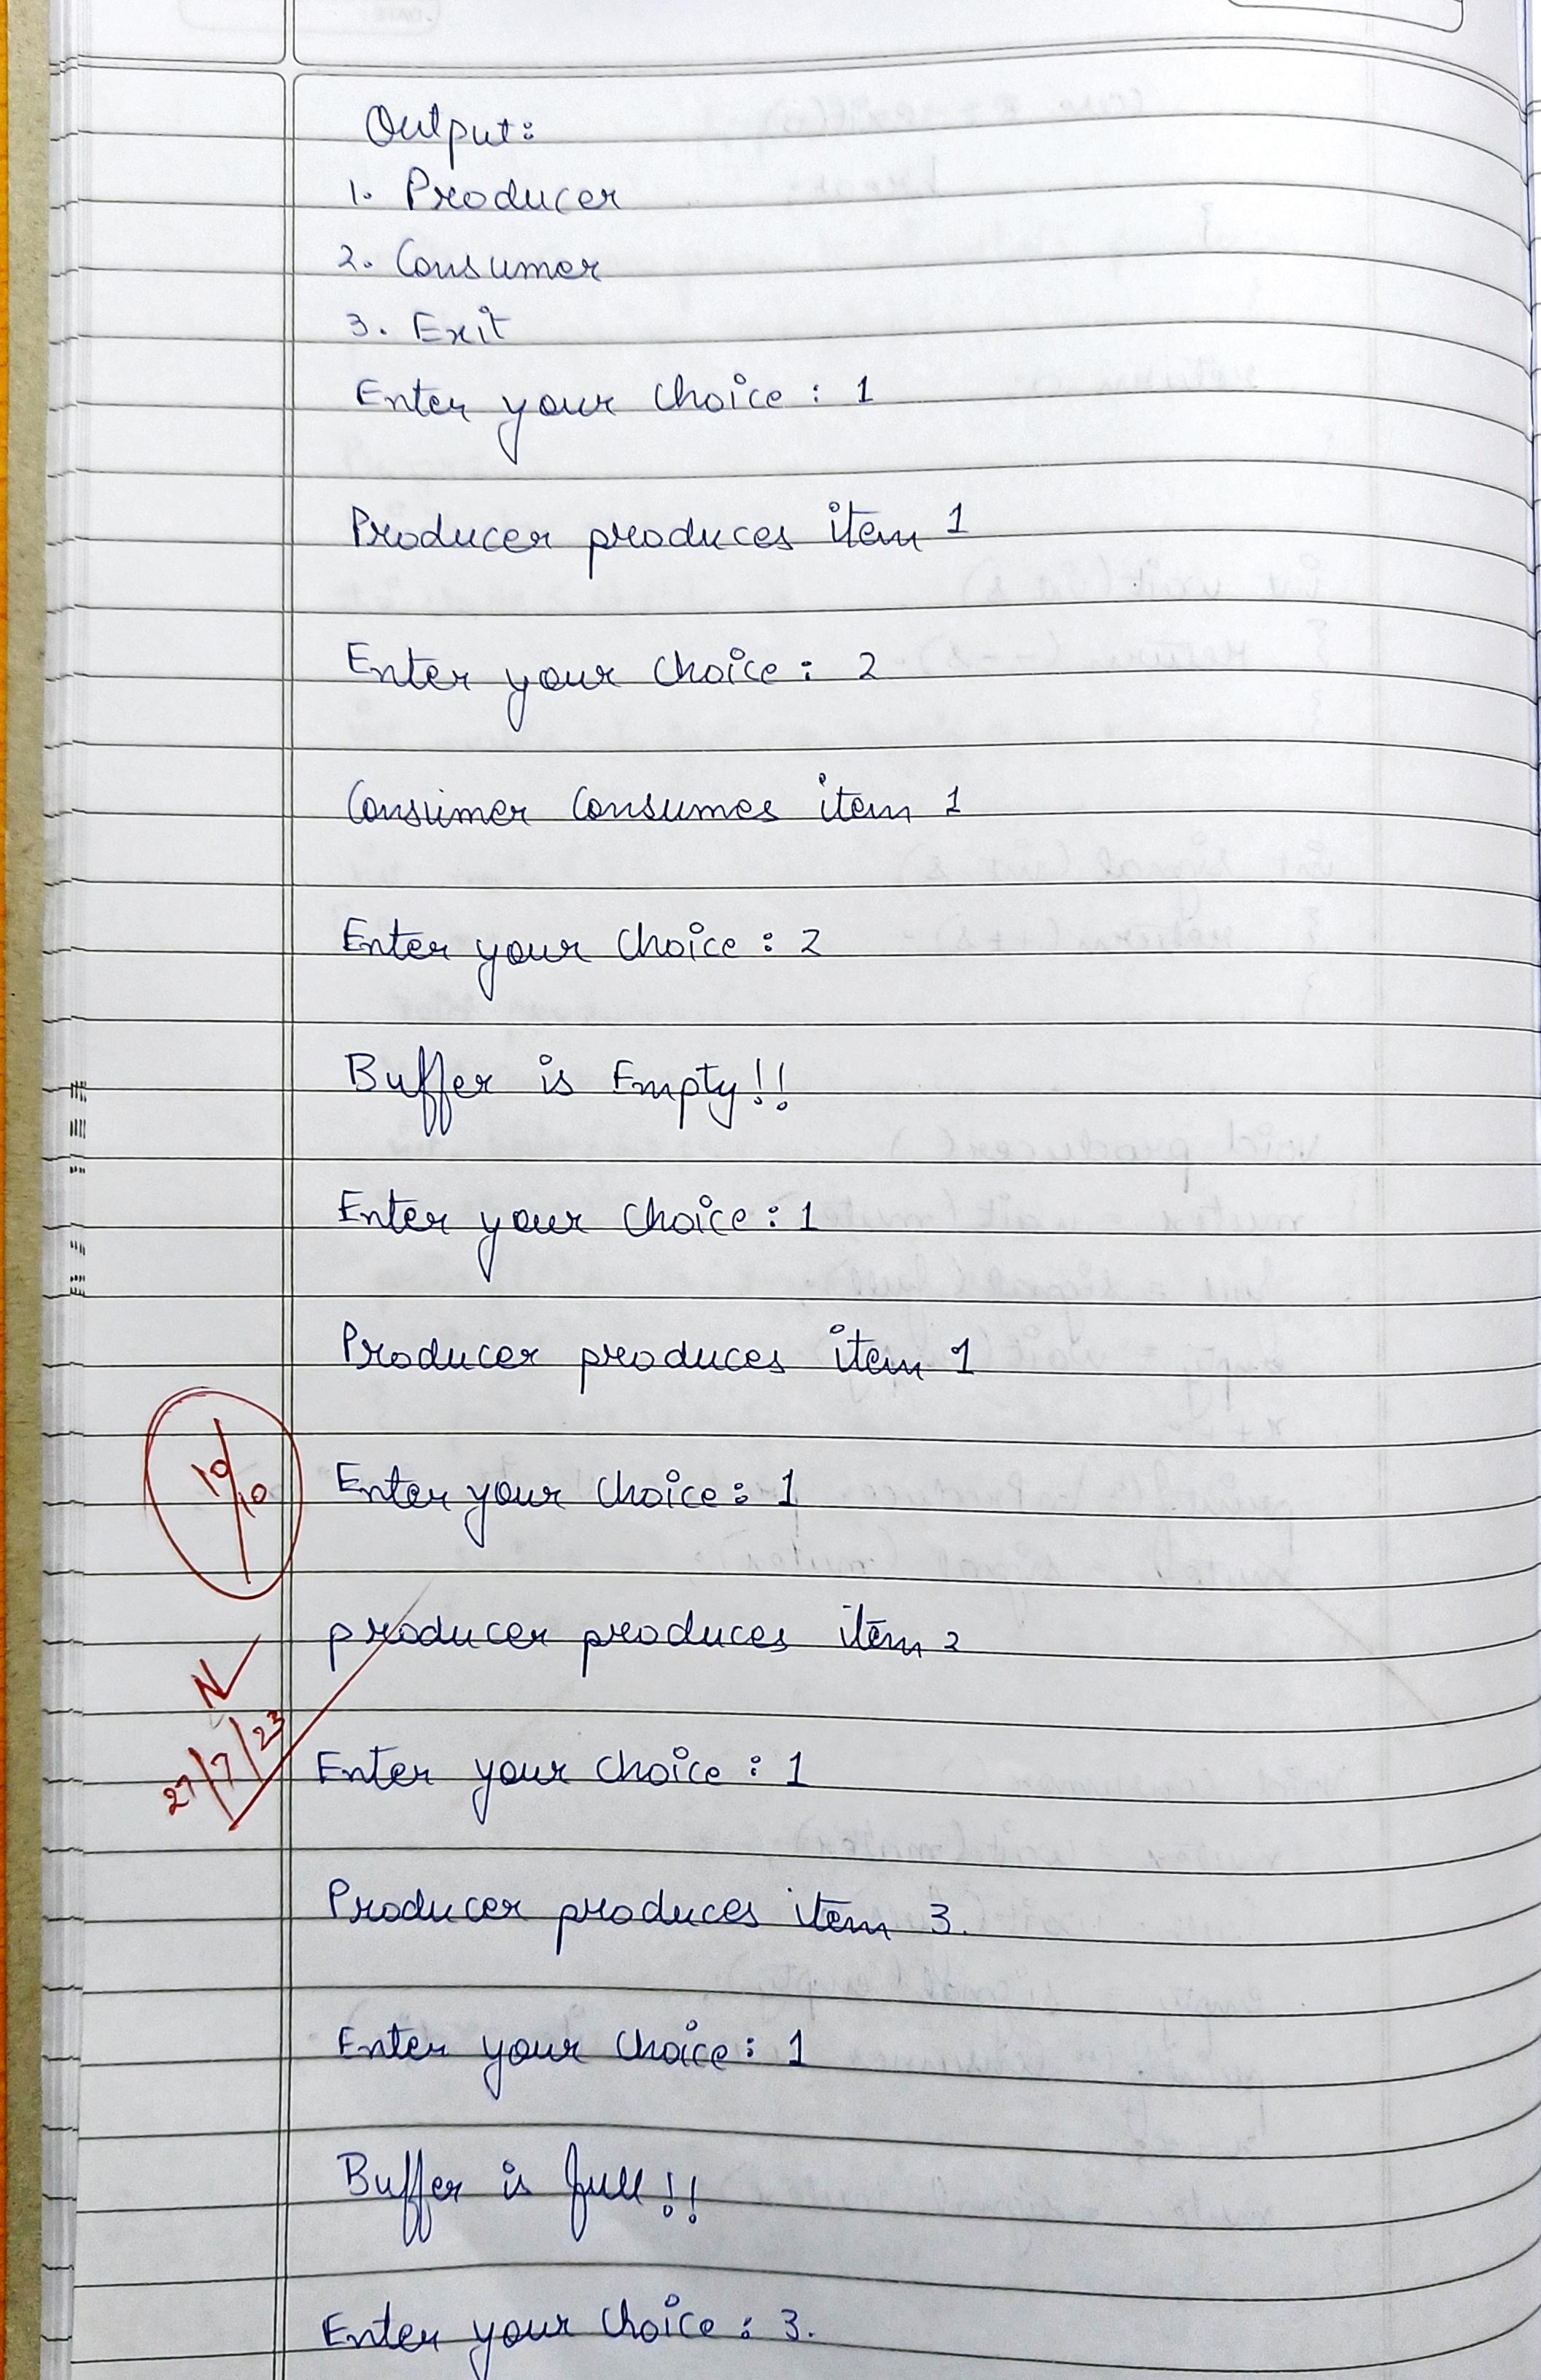 Output:
1. Producer
2. Consumer
3. Exit
Enter your choice : 1
Producer produces item 1
Enter your choice : 2
Consumer Consumes item 1
Enter your choice : 2
Buffer is Empty!!
Enter your choice : 1
Producer produces item 1
10/10
Enter your choice : 1
producer produces item 2
27/7/23
Enter your choice : 1
Producer produces item 3.
Enter your choice : 1
Buffer is full!!
Enter your choice : 3.